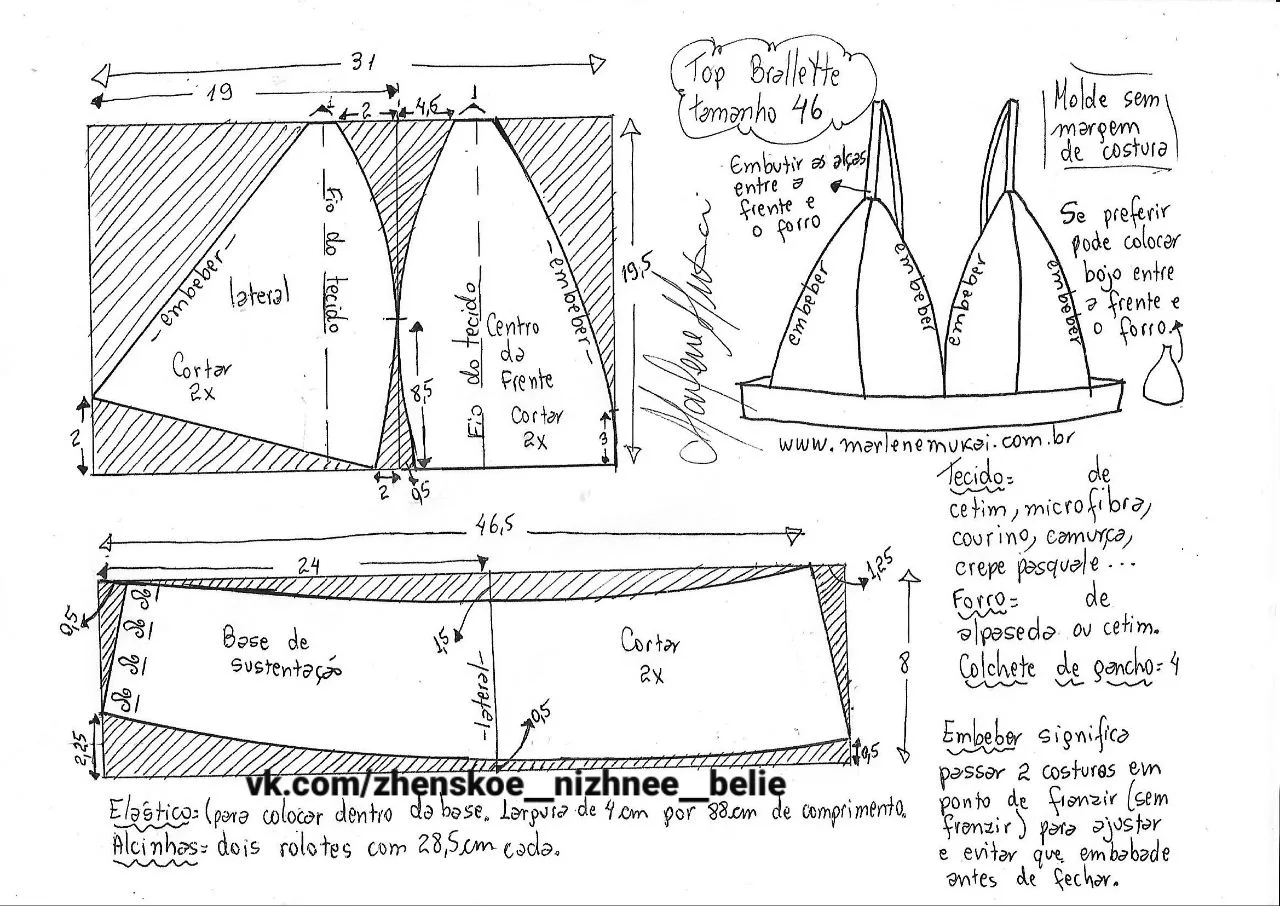 31
19
1
2
4,5
1
Fio do tecido
-embeber-
lateral
Cortar
2x
Fio do tecido
-embeber-
Centro
da
Frente
Cortar
2x
8,5
19,5
2
3
2
0,5
Top Brallette
tamanho 46
Embutir as alças
entre a
frente e
o forro
embeber
embeber
embeber
embeber
Molde sem
margem
de costura
Se preferir
pode colocar
bojo entre
a frente e
o forro.
Marlene Mukai
www.marlenemukai.com.br
46,5
24
0,5
1,5
1,25
Base de
sustentação
-lateral-
Cortar
2x
8
0,5
2,25
0,5
Tecido= de
cetim, microfibra,
courino, camurça,
crepe pasquale...
Forro= de
alpaseda ou cetim.
Colchete de gancho=4
Embeber significa
passar 2 costuras em
ponto de franzir (sem
franzir) para ajustar
e evitar que embabade
antes de fechar.
vk.com/zhenskoe__nizhnee__belie
Elástico=(para colocar dentro da base. Largura de 4cm por 88cm de comprimento.
Alcinhas= dois rolotes com 28,5cm cada.